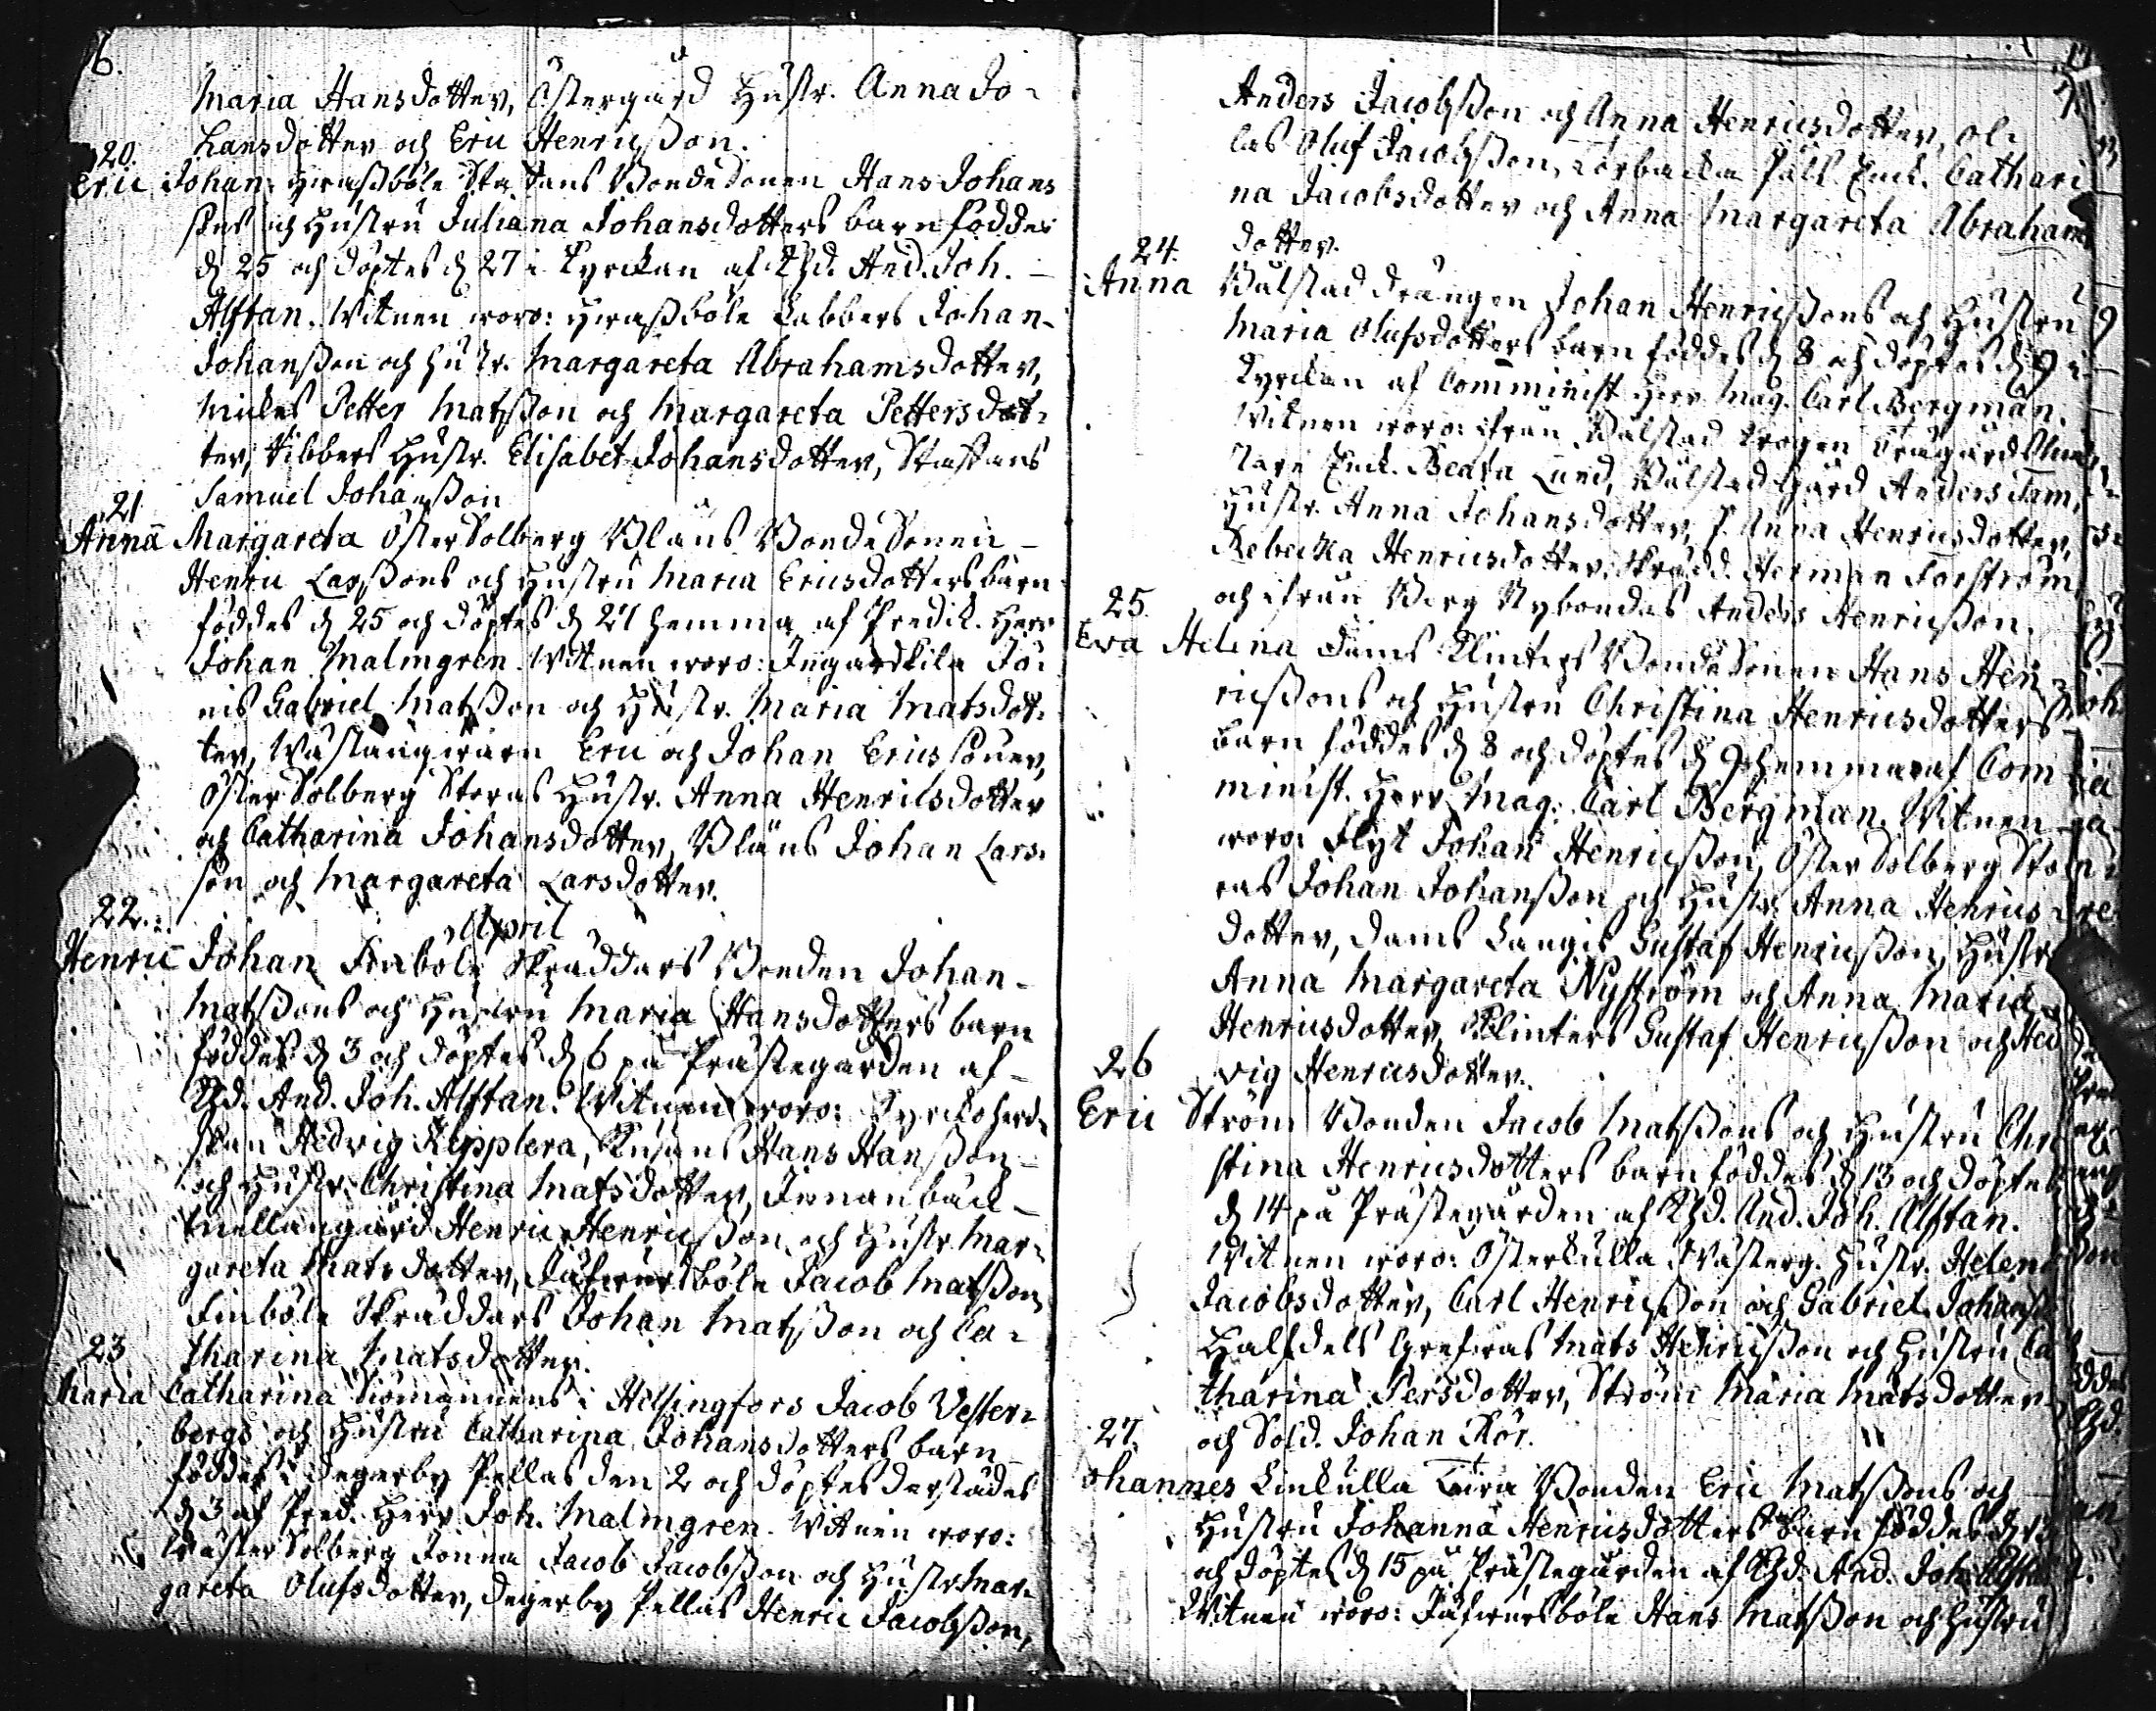 6.
Maria Hansdotter, Östergård Hustr. Anna Jo-
hansdotter och Eric Henricsson.
20.
Eric Johan, Bondesonen Hans Johans
sons och Hustru Juliana Johansdotters barn föddes
d 25 och döptes d 27 i Kyrckan af Khd. And. Joh.
Alftan. Witnen woro: Labbers Johan
Johansson och Hustr. Margareta Abrahamsdotter,
Mickes Petter Matsson och Margareta Pettersdot-
ter, Hustr. Elisabet Johansdotter,
Samuel Johansson
21
Anna Margareta Öster Solberg Bondesonen
Henric Larssons och Hustru Maria Ericsdotters barn
föddes d 25 och döptes d 27 hemma af Predik. Herr
Johan Malmgren. Witnen woro: Ingarskila Jö-
nis Gabriel Matsson och Hustr. Maria Matsdot-
ter, Eric och Johan Ericssöner,
Öster Solberg Storas Hustr. Anna Henricsdotter
och Catharina Johansdotter, Johan Lars-
son och Margareta Larsdotter.
April
22.
Henric Johan Finböle Skräddars Bonden Johan
Matssons och Hustru Maria Hansdotters barn
föddes d 3 och döptes d 6 på Prästegården af
Khd. And. Joh. Alftan. Witnen woro: Kyrckoherd-
skan Hedvig Kepplera, Hans Hansson
och Hustr. Christina Matsdotter,
Mellangård Henric Henricsson och Hustr. Mar-
gareta Matsdotter, Jacob Matsson
Finböle Skräddars Johan Matsson och Ca-
tharina Matsdotter.
23
Maria Catharina Siömannens i Helsingfors Jacob Vester-
bergs och Hustru Catharina Johansdotters barn
föddes i Degerby Pellas den 2 och döptes derstädes
d 3 af Pred. Herr Joh. Malmgren. Witnen woro:
Wäster Solberg Jacob Jacobsson och Hustr. Mar-
gareta Olufsdotter, Degerby Pellas Henric Jacobsson,
7.
Anders Jacobsson och Anna Henricsdotter, Ol-
las Oluf Jacobsson, Torbacka Enck. Cathari
na Jacobsdotter och Anna Margareta Abrahams
dotter.
24.
Anna Bålstad Drängen Johan Henricssons och Hustru
Maria Olufsdotters barn föddes d 8 och döptes d 9 i
Kyrckan af Comminist Herr Mag. Carl Bergman.
Witnen woro: ifrån Bålstad
Enck. Beata Lund, Bålstad Gård Anders
Hustr. Anna Johansdotter, P. Anna Henricsdotter,
Rebecka Henricsdotter, Skrädd. Herman Forström
och ifrån Berg Nybondas Anders Henricsson.
25.
Eva Helena Dams Klinters Bondesonen Hans Hen-
ricssons och Hustru Christina Henricsdotters
barn föddes d 8 och döptes d 9 hemma af Com
minist. Herr Mag. Carl Bergman. Witnen
woro: Flyt Johan Henricsson, Öster Solberg Sto
ras Johan Johansson och Hustr. Anna Henrics
dotter, Dams Gustaf Henricsson, Hustr.
Anna Margareta Nyström och Anna Maria
Henricsdotter, Klinters Gustaf Henricsson och Hed
vig Henricsdotter.
26
Eric Ström Bonden Jacob Matssons och Hustru Chri
stina Henricsdotters barn föddes d 13 och döptes
d 14 på Prästegården af Khd. And. Joh. Alftan.
Witnen woro: Österkulla Wästerg. Hustr. Helena
Jacobsdotter, Carl Henricsson och Gabriel Johanss
Halfdels Mats Henricsson och Hustru Ca
tharina Persdotter, Ström Maria Matsdotter
27.
och Sold. Johan Rör.
Johannes Linkulla Bonden Eric Matssons och
Hustru Johanna Henricsdotters barn föddes d 13
och döptes d 15 på Prästegården af Khd. And. Joh. Alftan
Witnen woro: Hans Matsson och Hustru